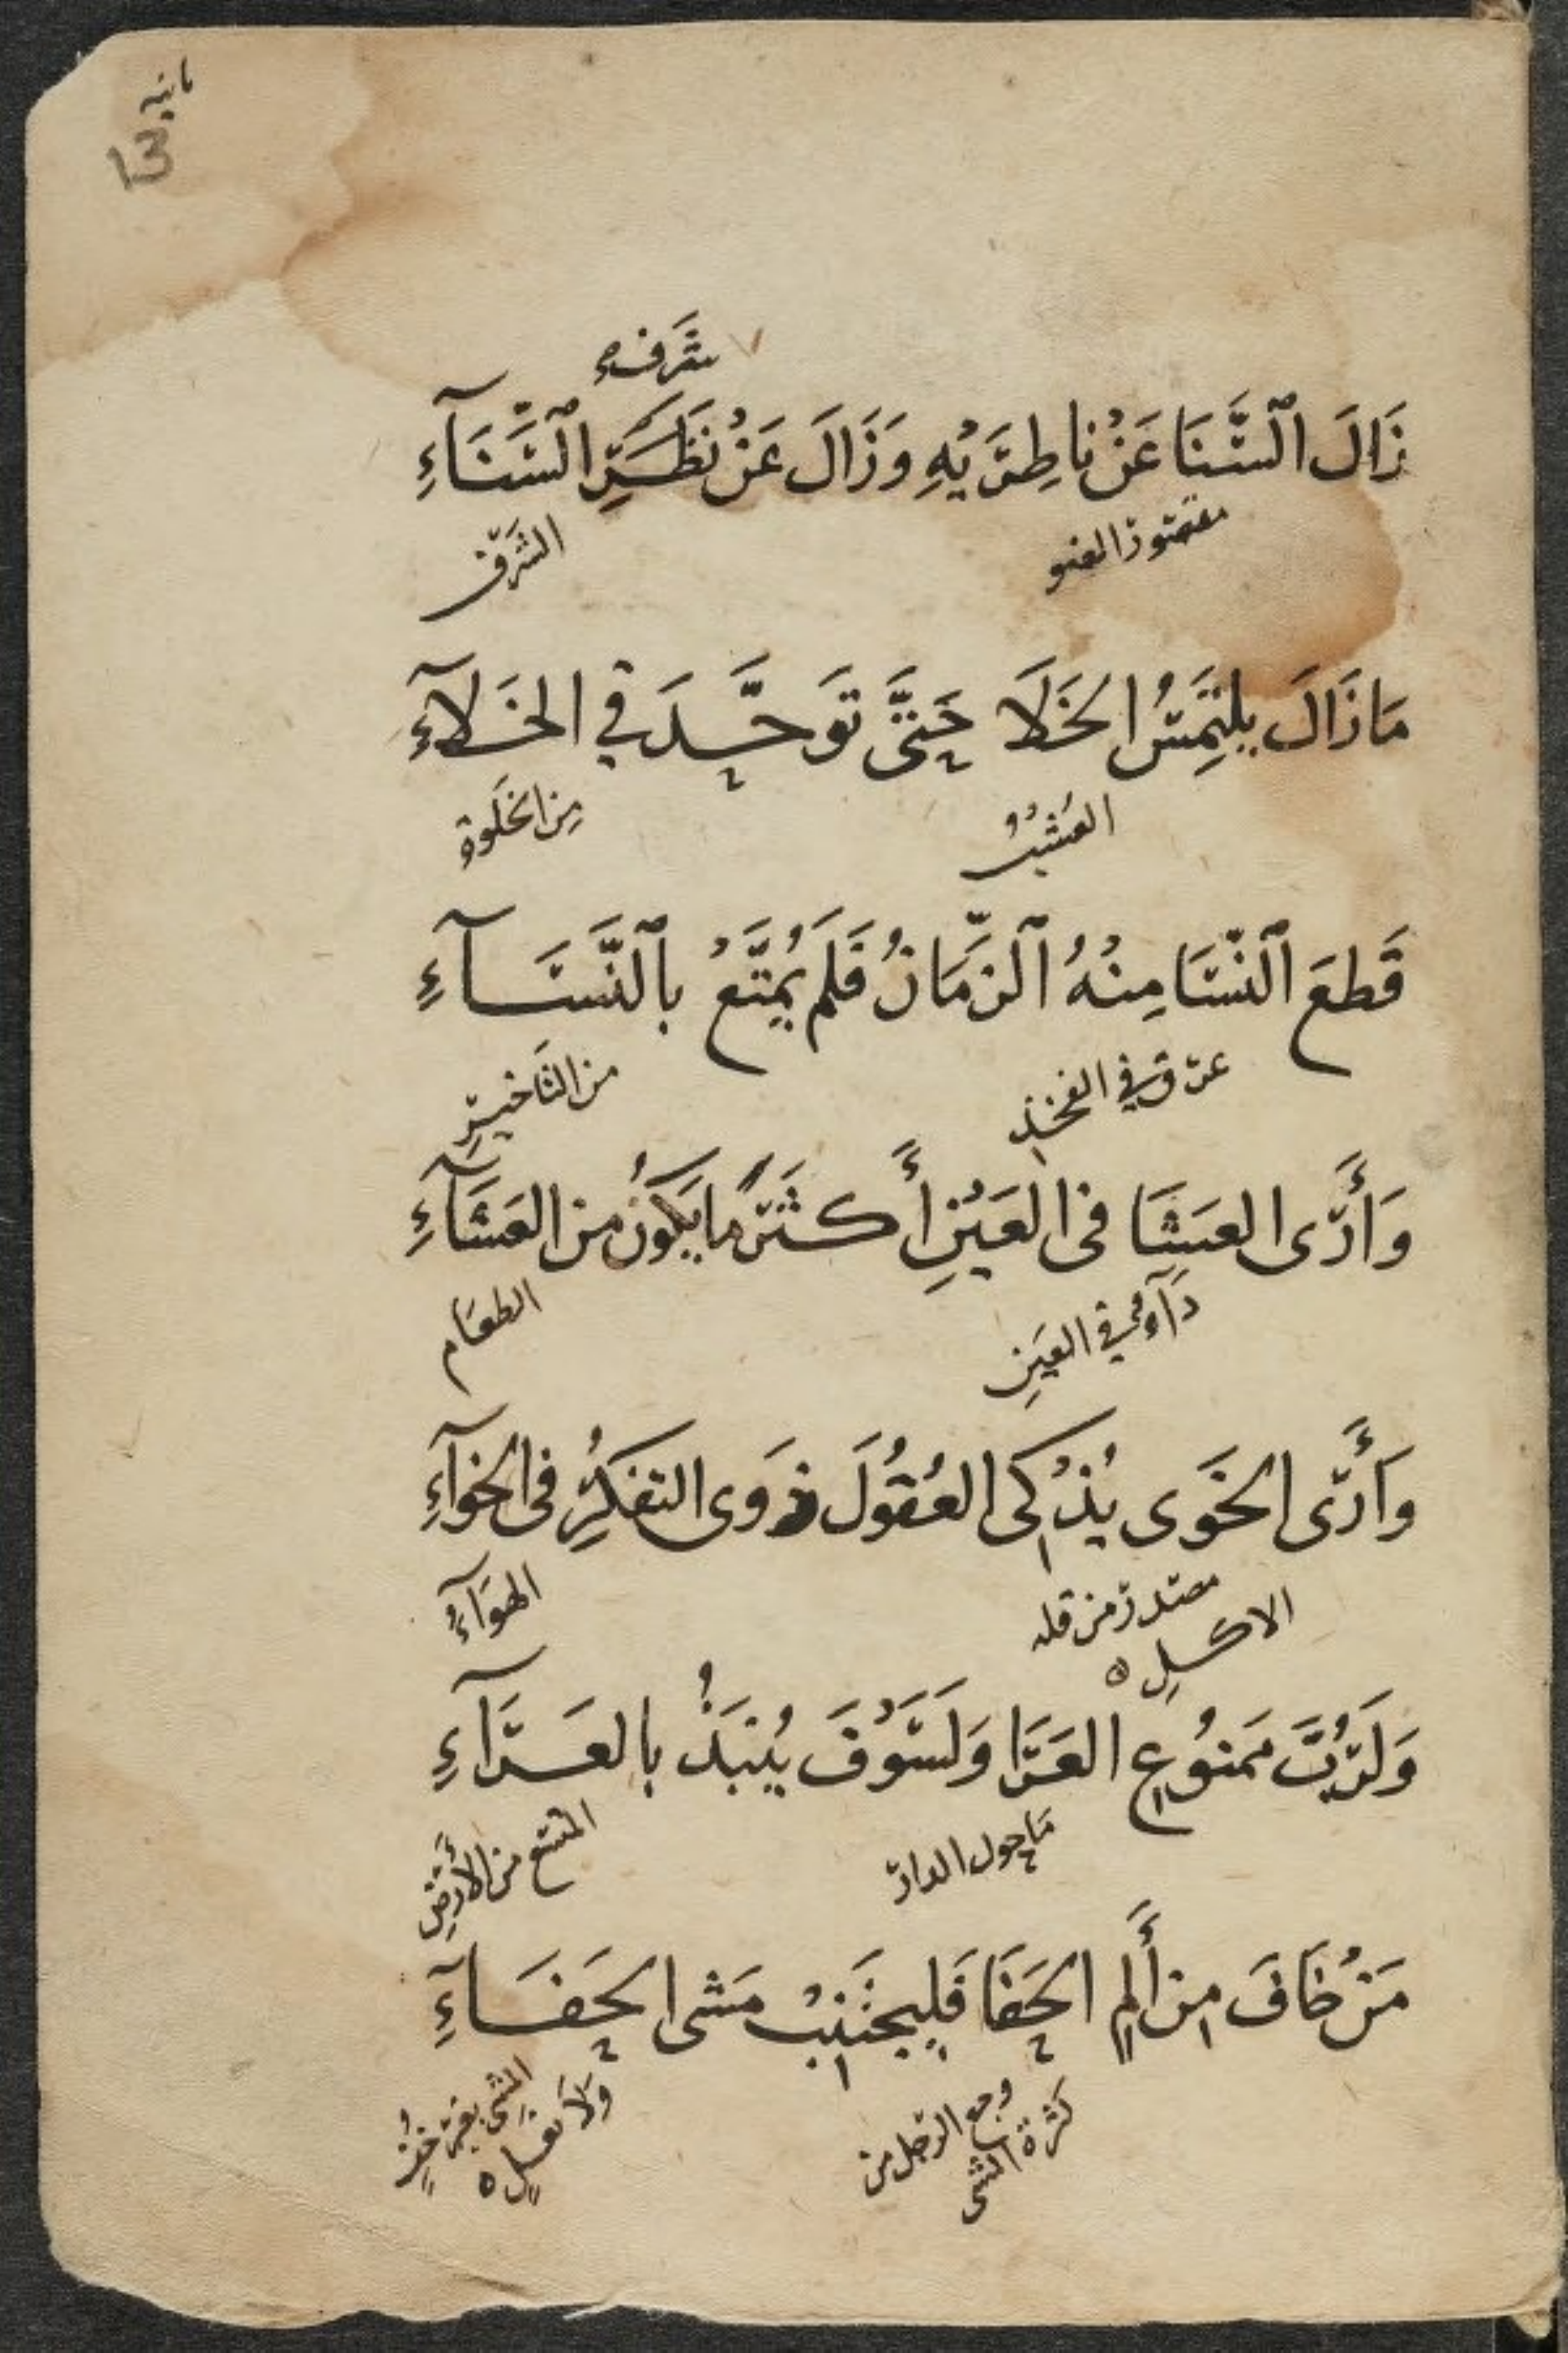 مانيه
13
شَرَفِهِ
زَالَ ٱلسَّنَا عَنْ ناظِرَيْهِ وَزَالَ عَنْ نَظَرِ ٱلسَّنَآءِ
مقصور الضو
الشَّرَف
مَا زَالَ يلتَمِسُ الخَلَا حَتَّى تَوَحَّدَ في الخَلَآءِ
العُشْبُ
مِن الخَلوة
قَطَعَ ٱلنَّسَا مِنْهُ ٱلزَّمَانُ فَلَمْ يُمَتَّعْ بٱلنَّسَآءِ
عرق في الفخذ
من التَاخيرِ
وَأَرَى العَشَا فى العَيْنِ أَكثَرَ ما يَكوُنُ من العَشَآءِ
دَآءٌ في العَينِ
الطعَام
وَأَرَى الخَوَى يُذْكى العُقُولَ ذوَى التفكرُِ فى الخوَآءِ
مصدر من قله
الاكلِ ه
الهوَآءُ
وَلَرُبَّ مَمنوُعِ العَرَا وَلَسَوْفَ يُنبَذُ بالعَرَآءِ
مَا حول الدار
المتسع من الأَرضِ
مَنْ خَافَ مِن أَلمِ الحَفَا فَليَجتَنِبْ مَشى الحَفَآءِ
وجع الرجل من
كثرة المشى
المشى بغير خُفٍّ
وَلَا نعلٍ ه